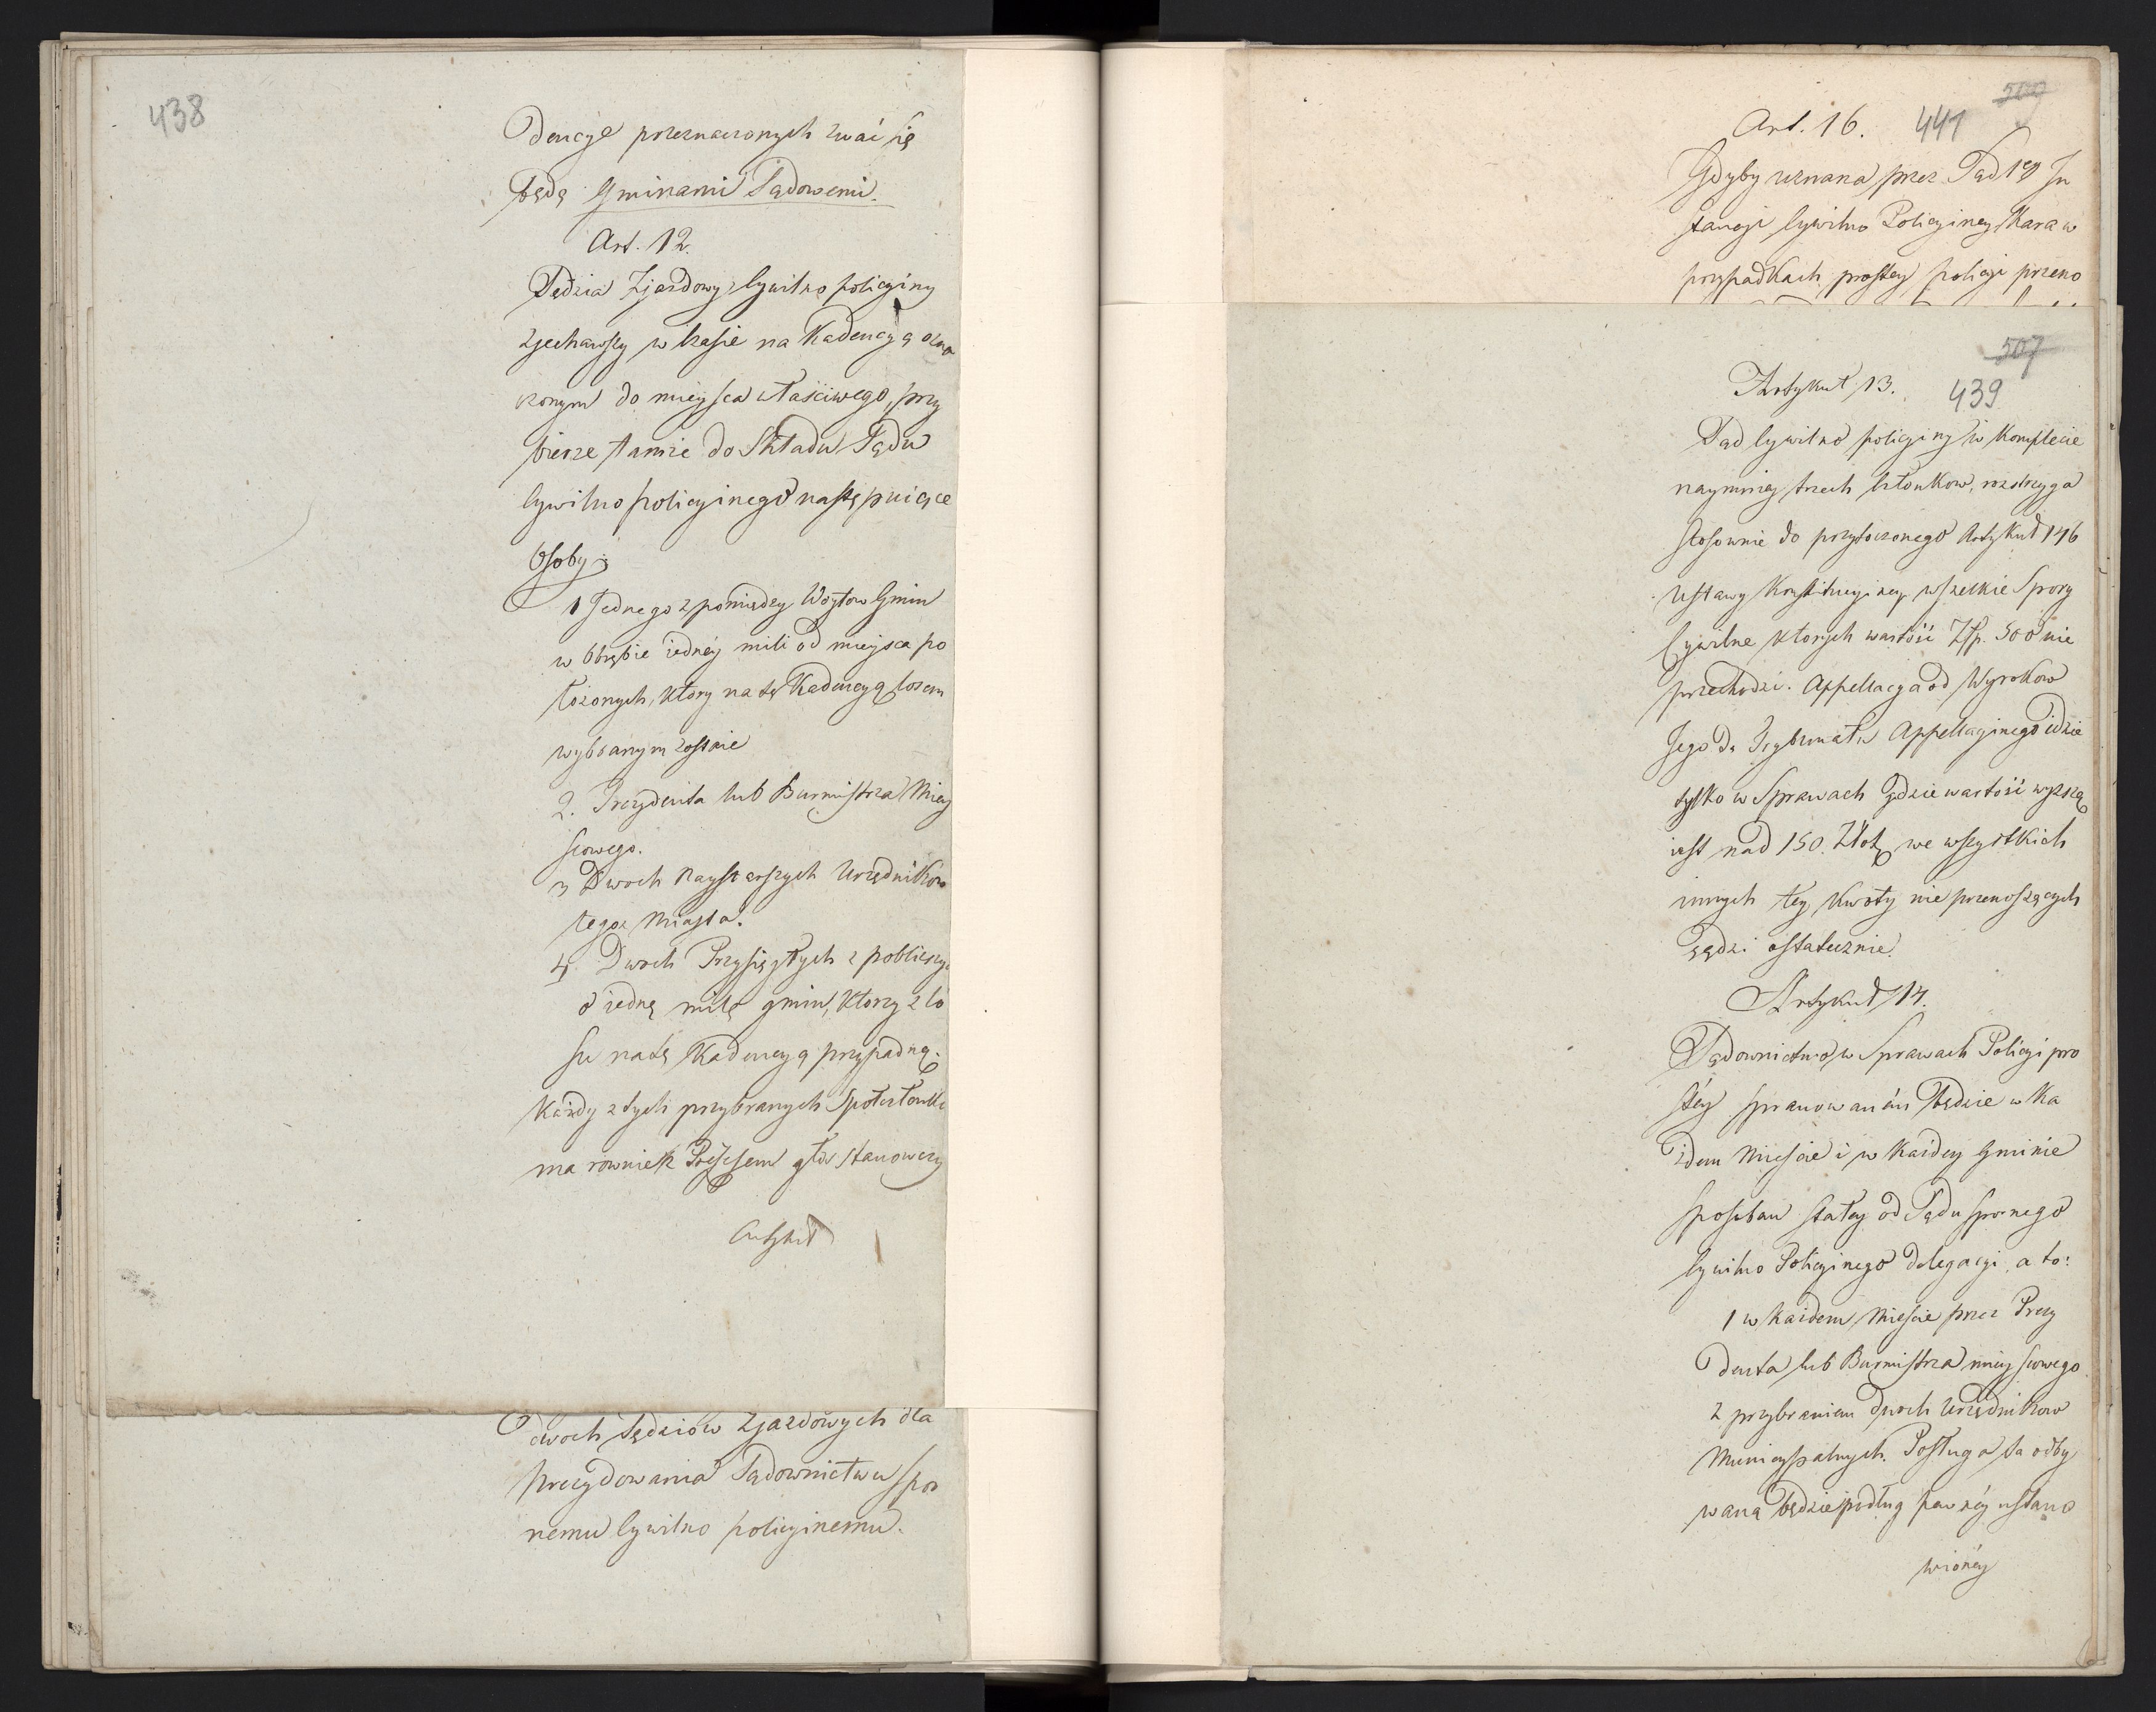 438
dencye przeznaczonych zwać się
będą Gminami Sądowemi.
Art. 12.
Sędzia Zjazdowy Cywilno policyiny
zjechawszy w czasie na Kadencyą ozna
czonym do mieysca właściwego, przy
bierze tamże do Składu Sądu
Cywilno policyinego następuiące
Osoby:
1 Jednego z pomiędzy Woytow Gmin
w Obrębie iednéy mili od mieysca po
łożonych, ktory na tę Kadencyą losem
wybranym zostanie
2. Prezydenta lub Burmistrza Miey
scowego.
3 Dwoch Naystarszych Urzędnikow
tegoz Miasta.
4 Dwoch Przysięgłych z pobliszych
o iedną milę gmin, ktorzy z lo
su na tę Kadencyą przypadną.
Każdy z tych przybranych Społczłonkow
ma rownie z Prezesem głos stanowczy
Artykuł
dwoch Sędziów Zjazdowych dla
prezydowania Sądownictwu spor
nemu Cywilno policyinemu.
500
Art. 16. 441
Gdyby uznana przez Sąd 1ey In
stancyi Cywilno Policyiney Kara w
przypadkach prostey policyi przeno
507
Artykuł 13. 439
Sąd Cywilno policyiny w Komplecie
nayminiey trzech Członkow, rozstrzyga
stosownie do przytoczonego Artykuł 146
Ustawy Konstitucyiney wszelkie Spory
Cywilne ktorych wartość Złp. 500 nie
przechodzi. Appellacya od Wyrokow
Jego do Trybunału Appellacyinego idzie
tylko w Sprawach gdzie wartość wyższą
iest nad 150. Złot. we wszystkich
innych tey Kwoty nie przenoszących
sądzi ostatecznie.
Artykuł 14.
Sądownictwo w Sprawach Policyi pro
stey sprawowaném będzie w Ka
żdem Mieście i w Każdey Gminie
sposobem stałey od Sądu spornego
Cywilno Policyinego delegacyi, a to:
1 w Każdem Mieście przez Prezy
denta lub Burmistrza mieyscowego
z przybraniem dwoch Urzędnikow
Municypalnych. Posługa ta odby
waną będzie podług pewnéy ustano
wionéy